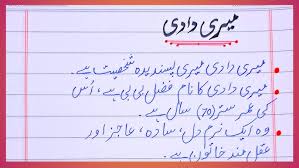 میری دادی
میری دادی میری پسندیدہ شخصیت ہے۔
میری دادی کا نام فضل بی بی ہے، اُس
کی عمر ستر (70) سال ہے۔
وہ ایک نرم دل، سادہ، عاجز اور
عقل مند خاتون ہے۔